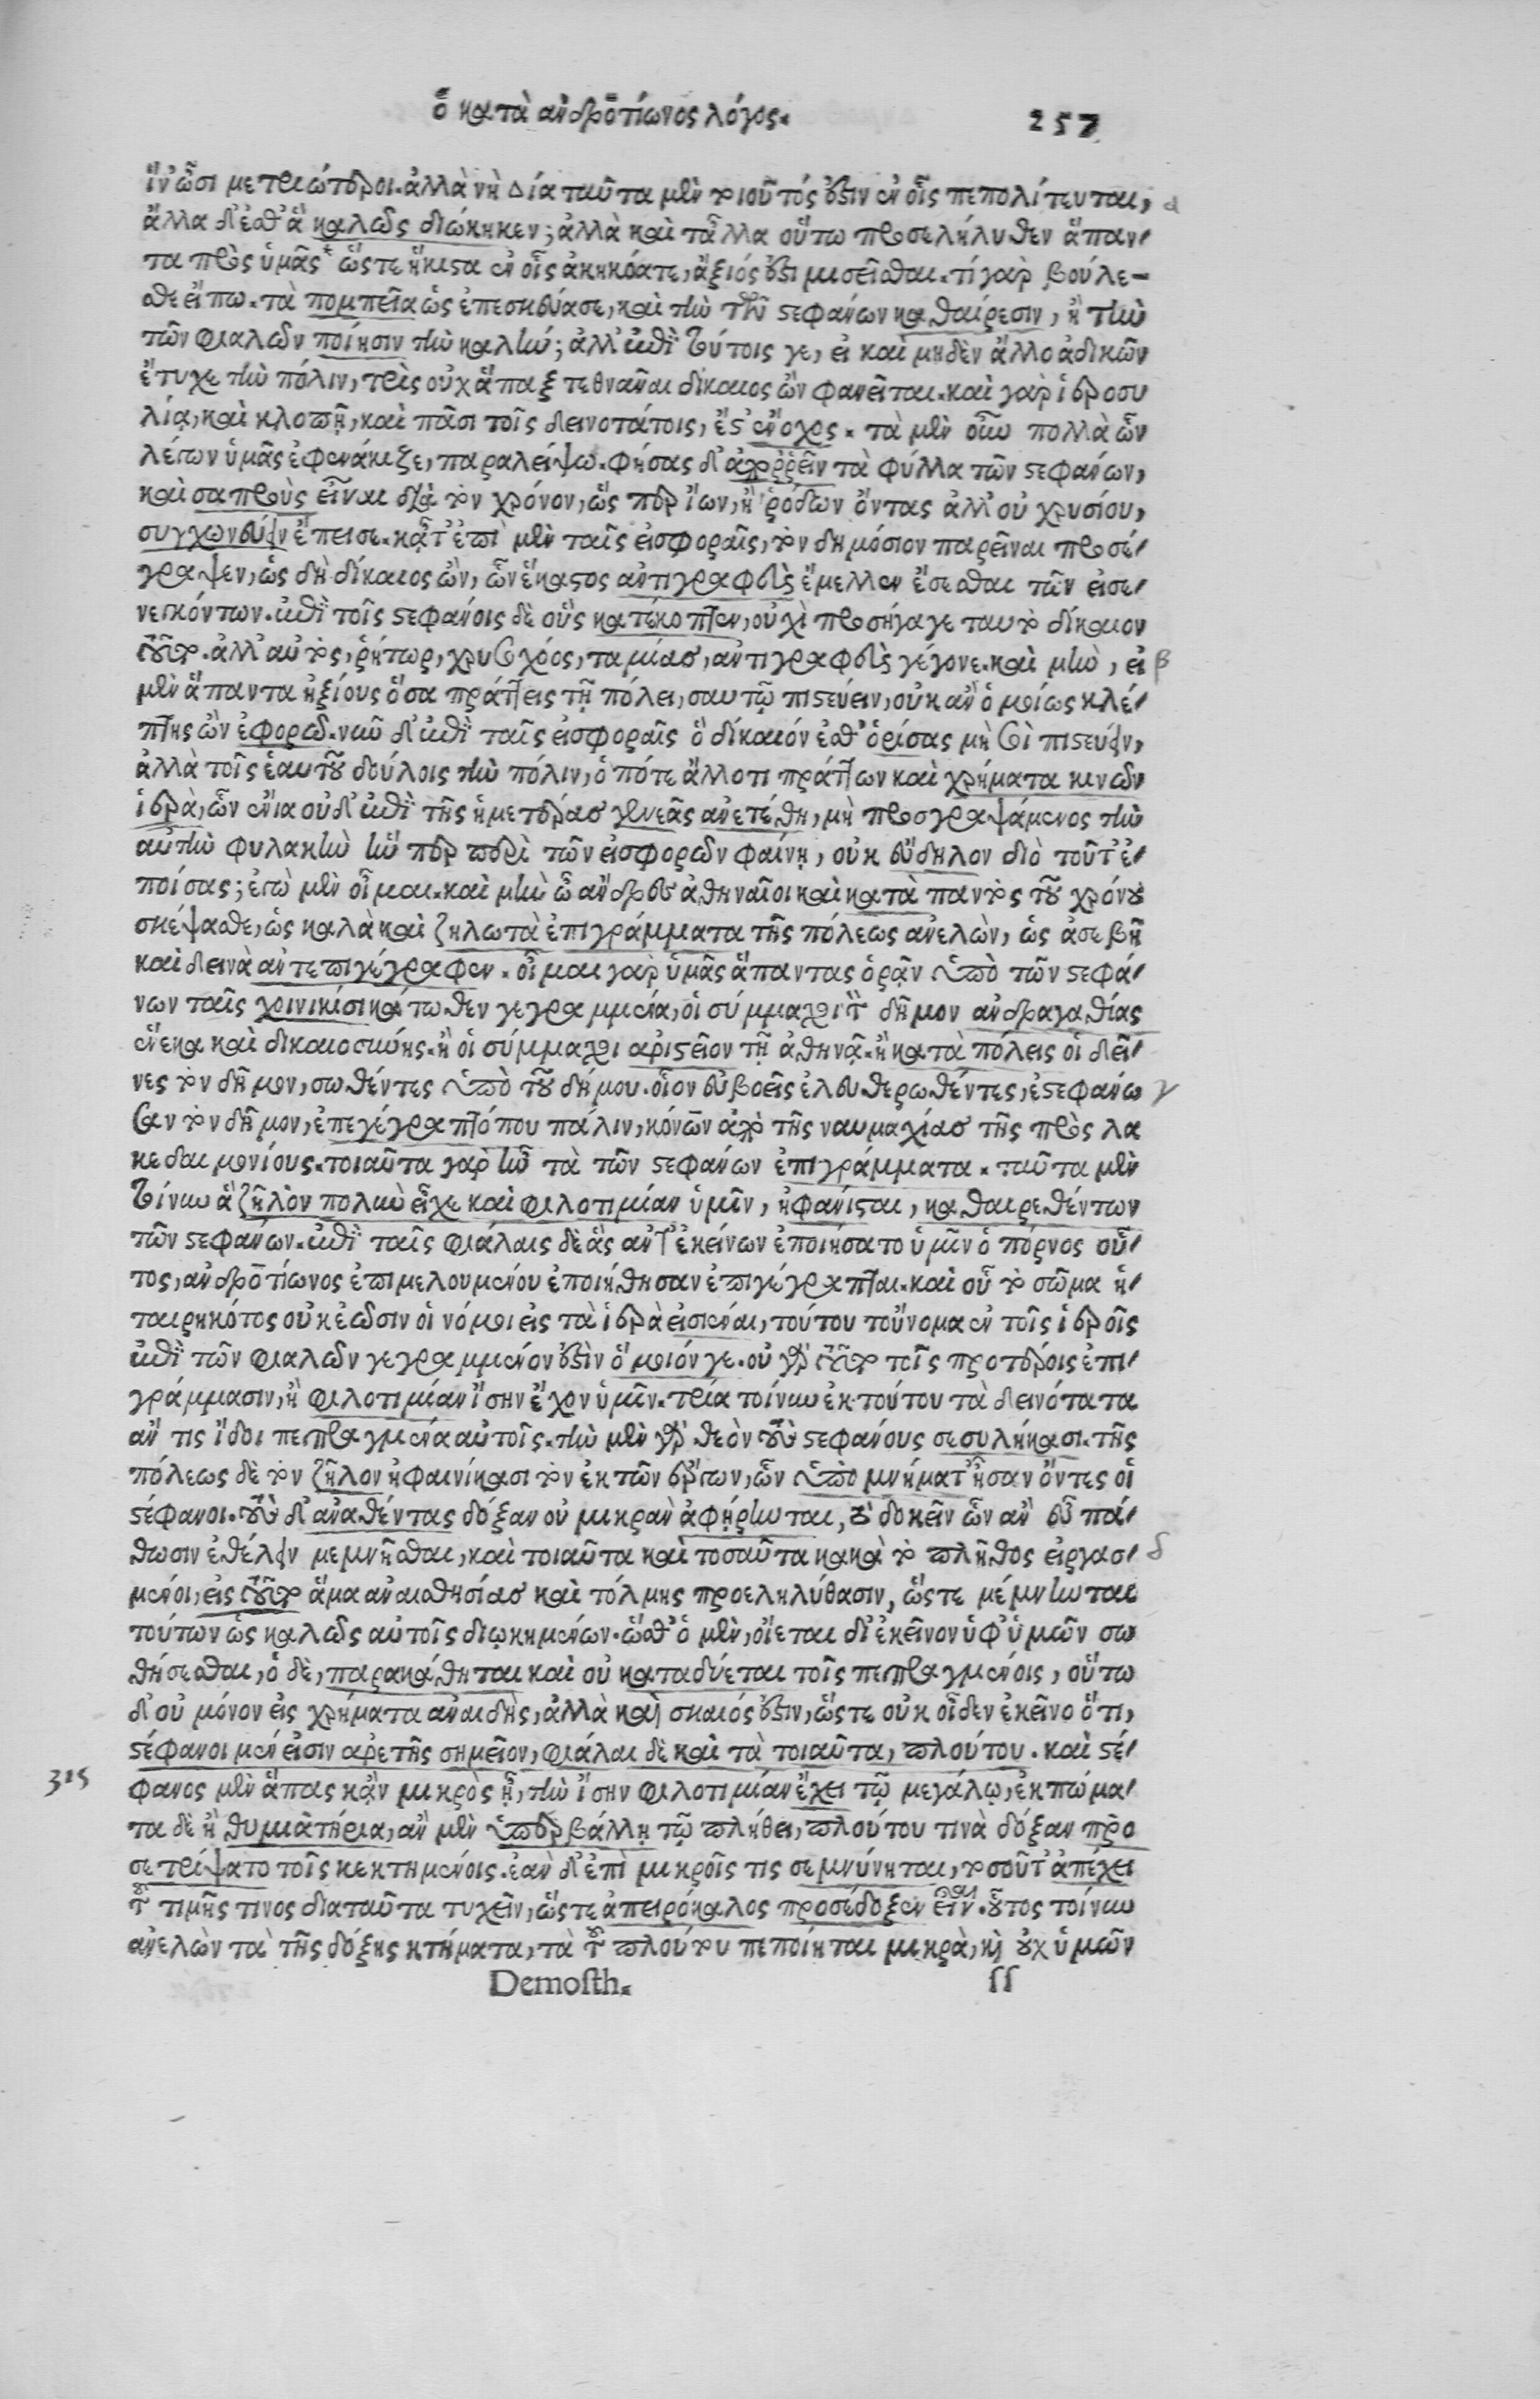 ὁ κατὰ ἀνδροτίωνος λόγος. 257
ἵν' ὦσι μετριώτεροι. ἀλλὰ νὴ Δία ταῦτα μὲν τοιοῦτός ἐστιν ἐν οἷς πεπολίτευται, α
ἄλλα δ' ἔσθ' ἃ καλῶς διώκηκεν; ἀλλὰ καὶ τἆλλα οὕτω προσελήλυθεν ἅπαν-
τα πρὸς ὑμᾶς* ὥστε ἥκιστα ἐν οἷς ἀκηκόατε, ἄξιός ἐστι μισεῖσθαι. τί γὰρ βούλε-
σθε εἴπω. τὰ πομπεῖα ὡς ἐπεσκεύασε, καὶ τὴν τῶν στεφάνων καθαίρεσιν, ἢ τὴν
τῶν φιαλῶν ποίησιν τὴν καλήν; ἀλλ' ἐπὶ τούτοις γε, εἰ καὶ μηδὲν ἄλλο ἀδικῶν
ἔτυχε τὴν πόλιν, τρὶς οὐχ ἅπαξ τεθνᾶναι δίκαιος ὢν φανεῖται. καὶ γὰρ ἱεροσυ
λίᾳ, καὶ κλοπῇ, καὶ πᾶσι τοῖς δεινοτάτοις, ἔστ' ἔνοχος. τὰ μὲν οὖν πολλὰ ὧν
λέγων ὑμᾶς ἐφενάκιζε, παραλείψω. φήσας δ' ἀπορρεῖν τὰ φύλλα τῶν στεφάνων,
καὶ σαπροὺς εἶναι διὰ τὸν χρόνον, ὥσπερ ἴων, ἢ ῥόδων ὄντας ἀλλ' οὐ χρυσίου,
συγχωνεύειν ἔπεισε. κᾆτ' ἐπὶ μὲν ταῖς εἰσφοραῖς, τὸν δημόσιον παρεῖναι προσέ-
γραψεν, ὡς δὴ δίκαιος ὢν, ὧν ἕκαστος ἀντιγραφεὺς ἔμελλεν ἔσεσθαι τῶν εἰσε-
νεγκόντων. ἐπὶ τοῖς στεφάνοις δὲ οὓς κατέκοπτεν, οὐχὶ προσήγαγε ταυτὸ δίκαιον
τοῦτο. ἀλλ' αὐτὸς, ῥήτωρ, χρυσοχόος, ταμίας, ἀντιγραφεὺς γέγονε. καὶ μὴν, εἰ β
μὲν ἅπαντα ἠξίους ὅσα πράττεις τῇ πόλει, σαυτῷ πιστεύειν, οὐκ ἂν ὁμοίως κλέ-
πτης ὢν ἐφορῶ. νῦν δ' ἐπὶ ταῖς εἰσφοραῖς ὃ δίκαιόν ἐσθ' ὁρίσας μὴ σοὶ πιστεύειν,
ἀλλὰ τοῖς ἑαυτοῦ δούλοις τὴν πόλιν, ὁπότε ἄλλο τι πράττων καὶ χρήματα κινῶν
ἱερὰ, ὧν ἔνια οὐδ' ἐπὶ τῆς ἡμετέρας γενεᾶς ἀνετέθη, μὴ προσγραψάμενος τὴν
αὐτὴν φυλακὴν ἥνπερ περὶ τῶν εἰσφορῶν φαίνῃ, οὐκ εὔδηλον διὸ τοῦτ' ἐ-
ποίησας; ἐγὼ μὲν οἶμαι. καὶ μὴν ὦ ἄνδρες ἀθηναῖοι καὶ κατὰ παντὸς τοῦ χρόνου
σκέψασθε, ὡς καλὰ καὶ ζηλωτὰ ἐπιγράμματα τῆς πόλεως ἀνελὼν, ὡς ἀσεβῆ
καὶ δεινὰ ἀντεπιγέγραφεν. οἶμαι γὰρ ὑμᾶς ἅπαντας ὁρᾶν ὑπὸ τῶν στεφά-
νων ταῖς χοινικίσι κάτωθεν γεγραμμένα, οἱ σύμμαχοι τὸν δῆμον ἀνδραγαθίας
ἕνεκα καὶ δικαιοσύνης. ἢ οἱ σύμμαχοι ἀριστεῖον τῇ ἀθηνᾷ. ἢ κατὰ πόλεις οἱ δεῖ-
νες τὸν δῆμον, σωθέντες ὑπὸ τοῦ δήμου. οἷον εὐβοεῖς ἐλευθερωθέντες, ἐστεφάνω γ
σαν τὸν δῆμον, ἐπεγέγραπτό που πάλιν, κόνων ἀπὸ τῆς ναυμαχίας τῆς πρὸς λα
κεδαιμονίους. τοιαῦτα γὰρ ἦν τὰ τῶν στεφάνων ἐπιγράμματα. ταῦτα μὲν
τοίνυν ἃ ζῆλον πολὺν εἶχε καὶ φιλοτιμίαν ὑμῖν, ἠφάνισται, καθαιρεθέντων
τῶν στεφάνων. ἐπὶ ταῖς φιάλαις δὲ ἃς ἀντ' ἐκείνων ἐποιήσατο ὑμῖν ὁ πόρνος οὗ-
τος, ἀνδροτίωνος ἐπιμελουμένου ἐποιήθησαν ἐπιγέγραπται. καὶ οὗ τὸ σῶμα ἡ-
ταιρηκότος οὐκ ἐῶσιν οἱ νόμοι εἰς τὰ ἱερὰ εἰσιέναι, τούτου τοὔνομα ἐν τοῖς ἱεροῖς
ἐπὶ τῶν φιαλῶν γεγραμμένον ἐστὶν ὅμοιόν γε. οὐ γὰρ τοῦτο τοῖς προτέροις ἐπι-
γράμμασιν, ἢ φιλοτιμίαν ἴσην ἔχον ὑμῖν. τρία τοίνυν ἐκ τούτου τὰ δεινότατα
ἄν τις ἴδοι πεπραγμένα αὐτοῖς. τὴν μὲν γὰρ θεὸν τοὺς στεφάνους σεσυλήκασι. τῆς
πόλεως δὲ τὸν ζῆλον ἠφανίκασι τὸν ἐκ τῶν ἔργων, ὧν ὑπόμνηματ' ἦσαν ὄντες οἱ
στέφανοι. τοὺς δ' ἀναθέντας δόξαν οὐ μικρὰν ἀφῄρηνται, τὸ δοκεῖν ὧν ἂν εὖ πά-
θωσιν ἐθέλειν μεμνῆσθαι, καὶ τοιαῦτα καὶ τοσαῦτα κακὰ τὸ πλῆθος εἰργασ- δ
μένοι, εἰς τοῦτο ἅμα ἀναισθησίας καὶ τόλμης προεληλύθασιν, ὥστε μέμνηνται
τούτων ὡς καλῶς αὐτοῖς διῳκημένων. ὥσθ' ὁ μὲν, οἴεται δι' ἐκεῖνον ὑφ' ὑμῶν σω
θήσεσθαι, ὁ δὲ, παρακάθηται καὶ οὐ καταδύεται τοῖς πεπραγμένοις, οὕτω
δ' οὐ μόνον εἰς χρήματα ἀναιδὴς, ἀλλὰ καὶ σκαιός ἐστιν, ὥστε οὐκ οἶδεν ἐκεῖνο ὅτι,
στέφανοι μέν εἰσιν ἀρετῆς σημεῖον, φιάλαι δὲ καὶ τὰ τοιαῦτα, πλούτου. καὶ στέ-
315 φανος μὲν ἅπας κἂν μικρὸς ᾖ, τὴν ἴσην φιλοτιμίαν ἔχει τῷ μεγάλῳ, ἐκπώμα-
τα δὲ ἢ θυμιατήρια, ἂν μὲν ὑπερβάλλῃ τῷ πλήθει, πλούτου τινὰ δόξαν προ
σετρίψατο τοῖς κεκτημένοις. ἐὰν δ' ἐπὶ μικροῖς τις σεμνύνηται, τοσοῦτ' ἀπέχει
τοῦ τιμῆς τινος διὰ ταῦτα τυχεῖν, ὥστε ἀπειρόκαλος προσέδοξεν εἶναι. οὗτος τοίνυν
ἀνελὼν τὰ τῆς δόξης κτήματα, τὰ τοῦ πλούτου πεποίηται μικρὰ, καὶ οὐχ ὑμῶν
Demosth. ss